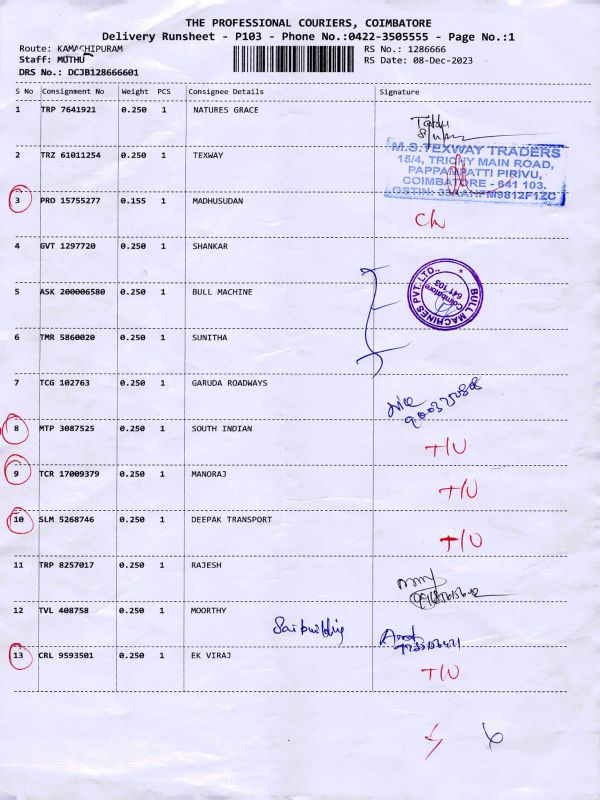 THE PROFESSIONAL COURIERS, COIMBATORE
Delivery Runsheet - P103 - Phone No.:0422-3505555 - Page No.:1
Route: KAMACHIPURAM RS No.: 1286666
Staff: MUTHU RS Date: 08-Dec-2023
DRS No.: DCJB128666601
S No Consignment No Weight PCS Consignee Details Signature
1 TRP 7641921 0.250 1 NATURES GRACE
2 TRZ 61011254 0.250 1 TEXWAY
M.S.TEXWAY TRADERS
15/4, TRICHY MAIN ROAD,
PAPPAMPATTI PIRIVU,
COIMBATORE - 641 103.
3 PRO 15755277 0.155 1 MADHUSUDAN
4 GVT 1297720 0.250 1 SHANKAR
5 ASK 200006580 0.250 1 BULL MACHINE
BULL MACHINES PVT.LTD.,
Coimbatore
641 103
6 TMR 5860020 0.250 1 SUNITHA
7 TCG 102763 0.250 1 GARUDA ROADWAYS
8 MTP 3087525 0.250 1 SOUTH INDIAN
T/U
9 TCR 17009379 0.250 1 MANORAJ
T/U
10 SLM 5268746 0.250 1 DEEPAK TRANSPORT
T/U
11 TRP 8257017 0.250 1 RAJESH
12 TVL 408758 0.250 1 MOORTHY
Sai building
13 CRL 9593501 0.250 1 EK VIRAJ
T/U